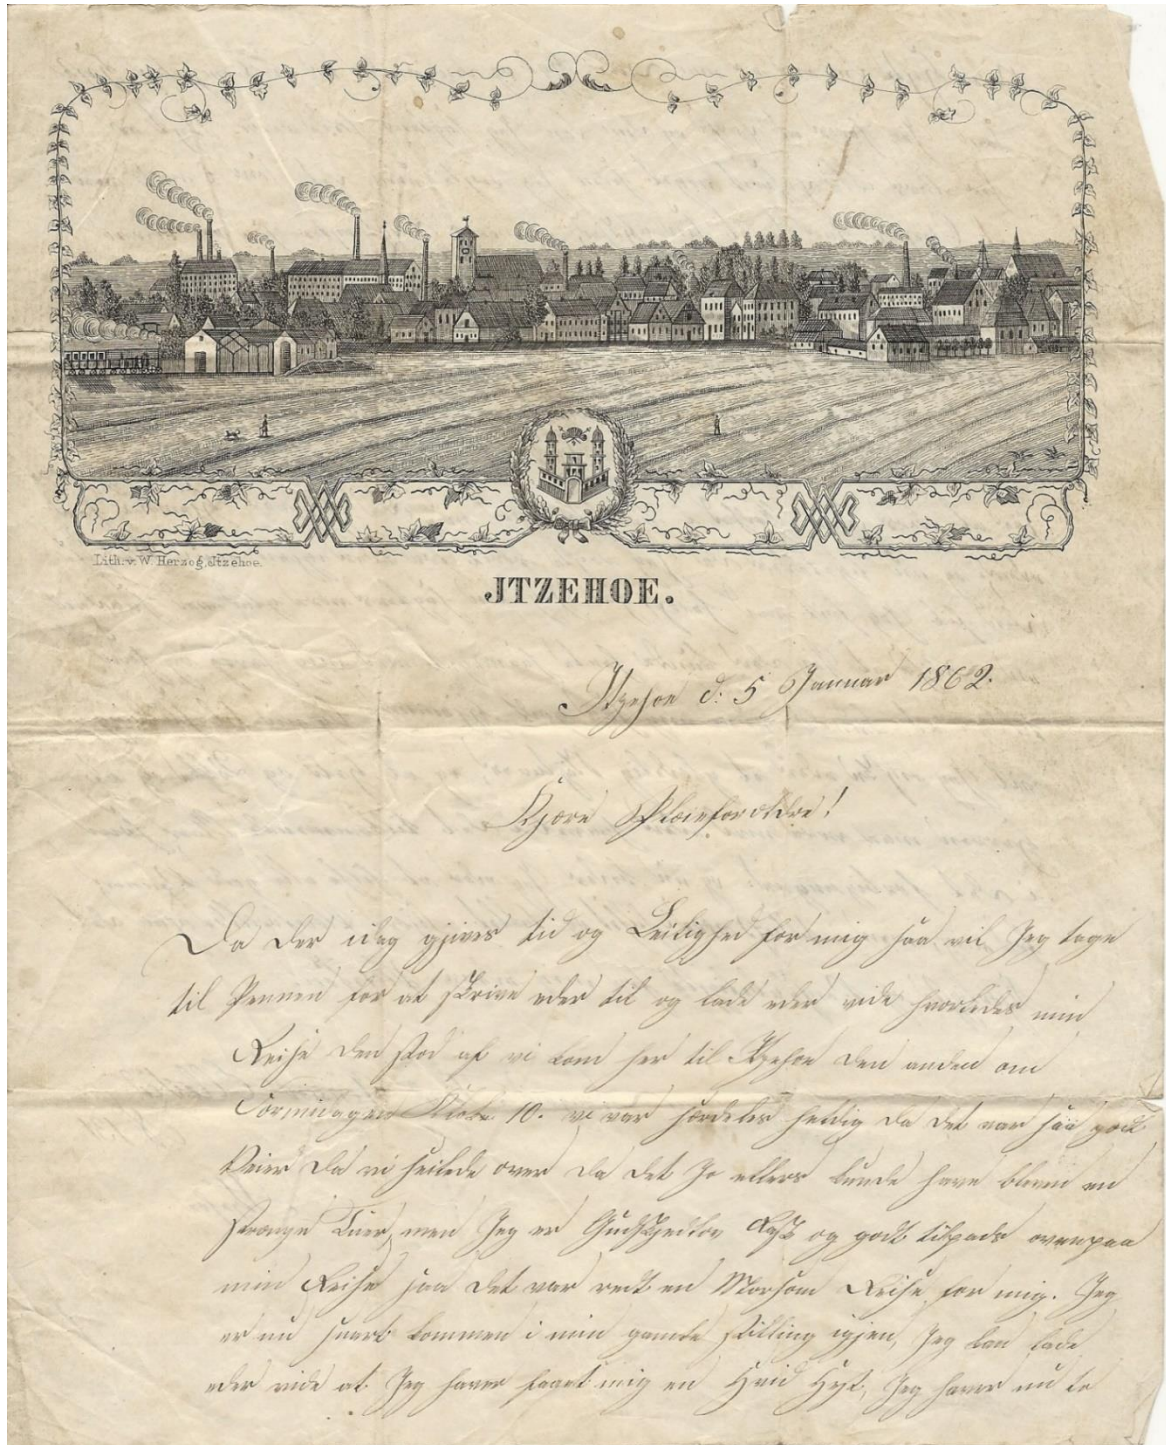 Lith. v. W. Herzog, Itzehoe.
JTZEHOE.
Itzehoe d: 5 Januar 1862.
Kjære Pleieforældre!
Da der idag gives tid og Leilighed for mig saa vil Jeg tage
til Pennen for at skrive eder til og lade eder vide hvorledes min
Reise den stod af vi kom her til Itzehoe den anden om
Formidagen Klokk 10. vi var særdeles heldig da det var saa godt
Veier da vi seilede over da det Jo ellers kunde have bleven en
strænge Tuer, men Jeg er Gudskedlov Rask og godt tilpads ovenpaa
min Reise saa det var redt en Morsom Reise for mig. Jeg
er nu snart kommen i min gamle stilling igjen, Jeg kan lade
eder vide at Jeg haver faaet mig en Hvid Hest, Jeg haver nu to